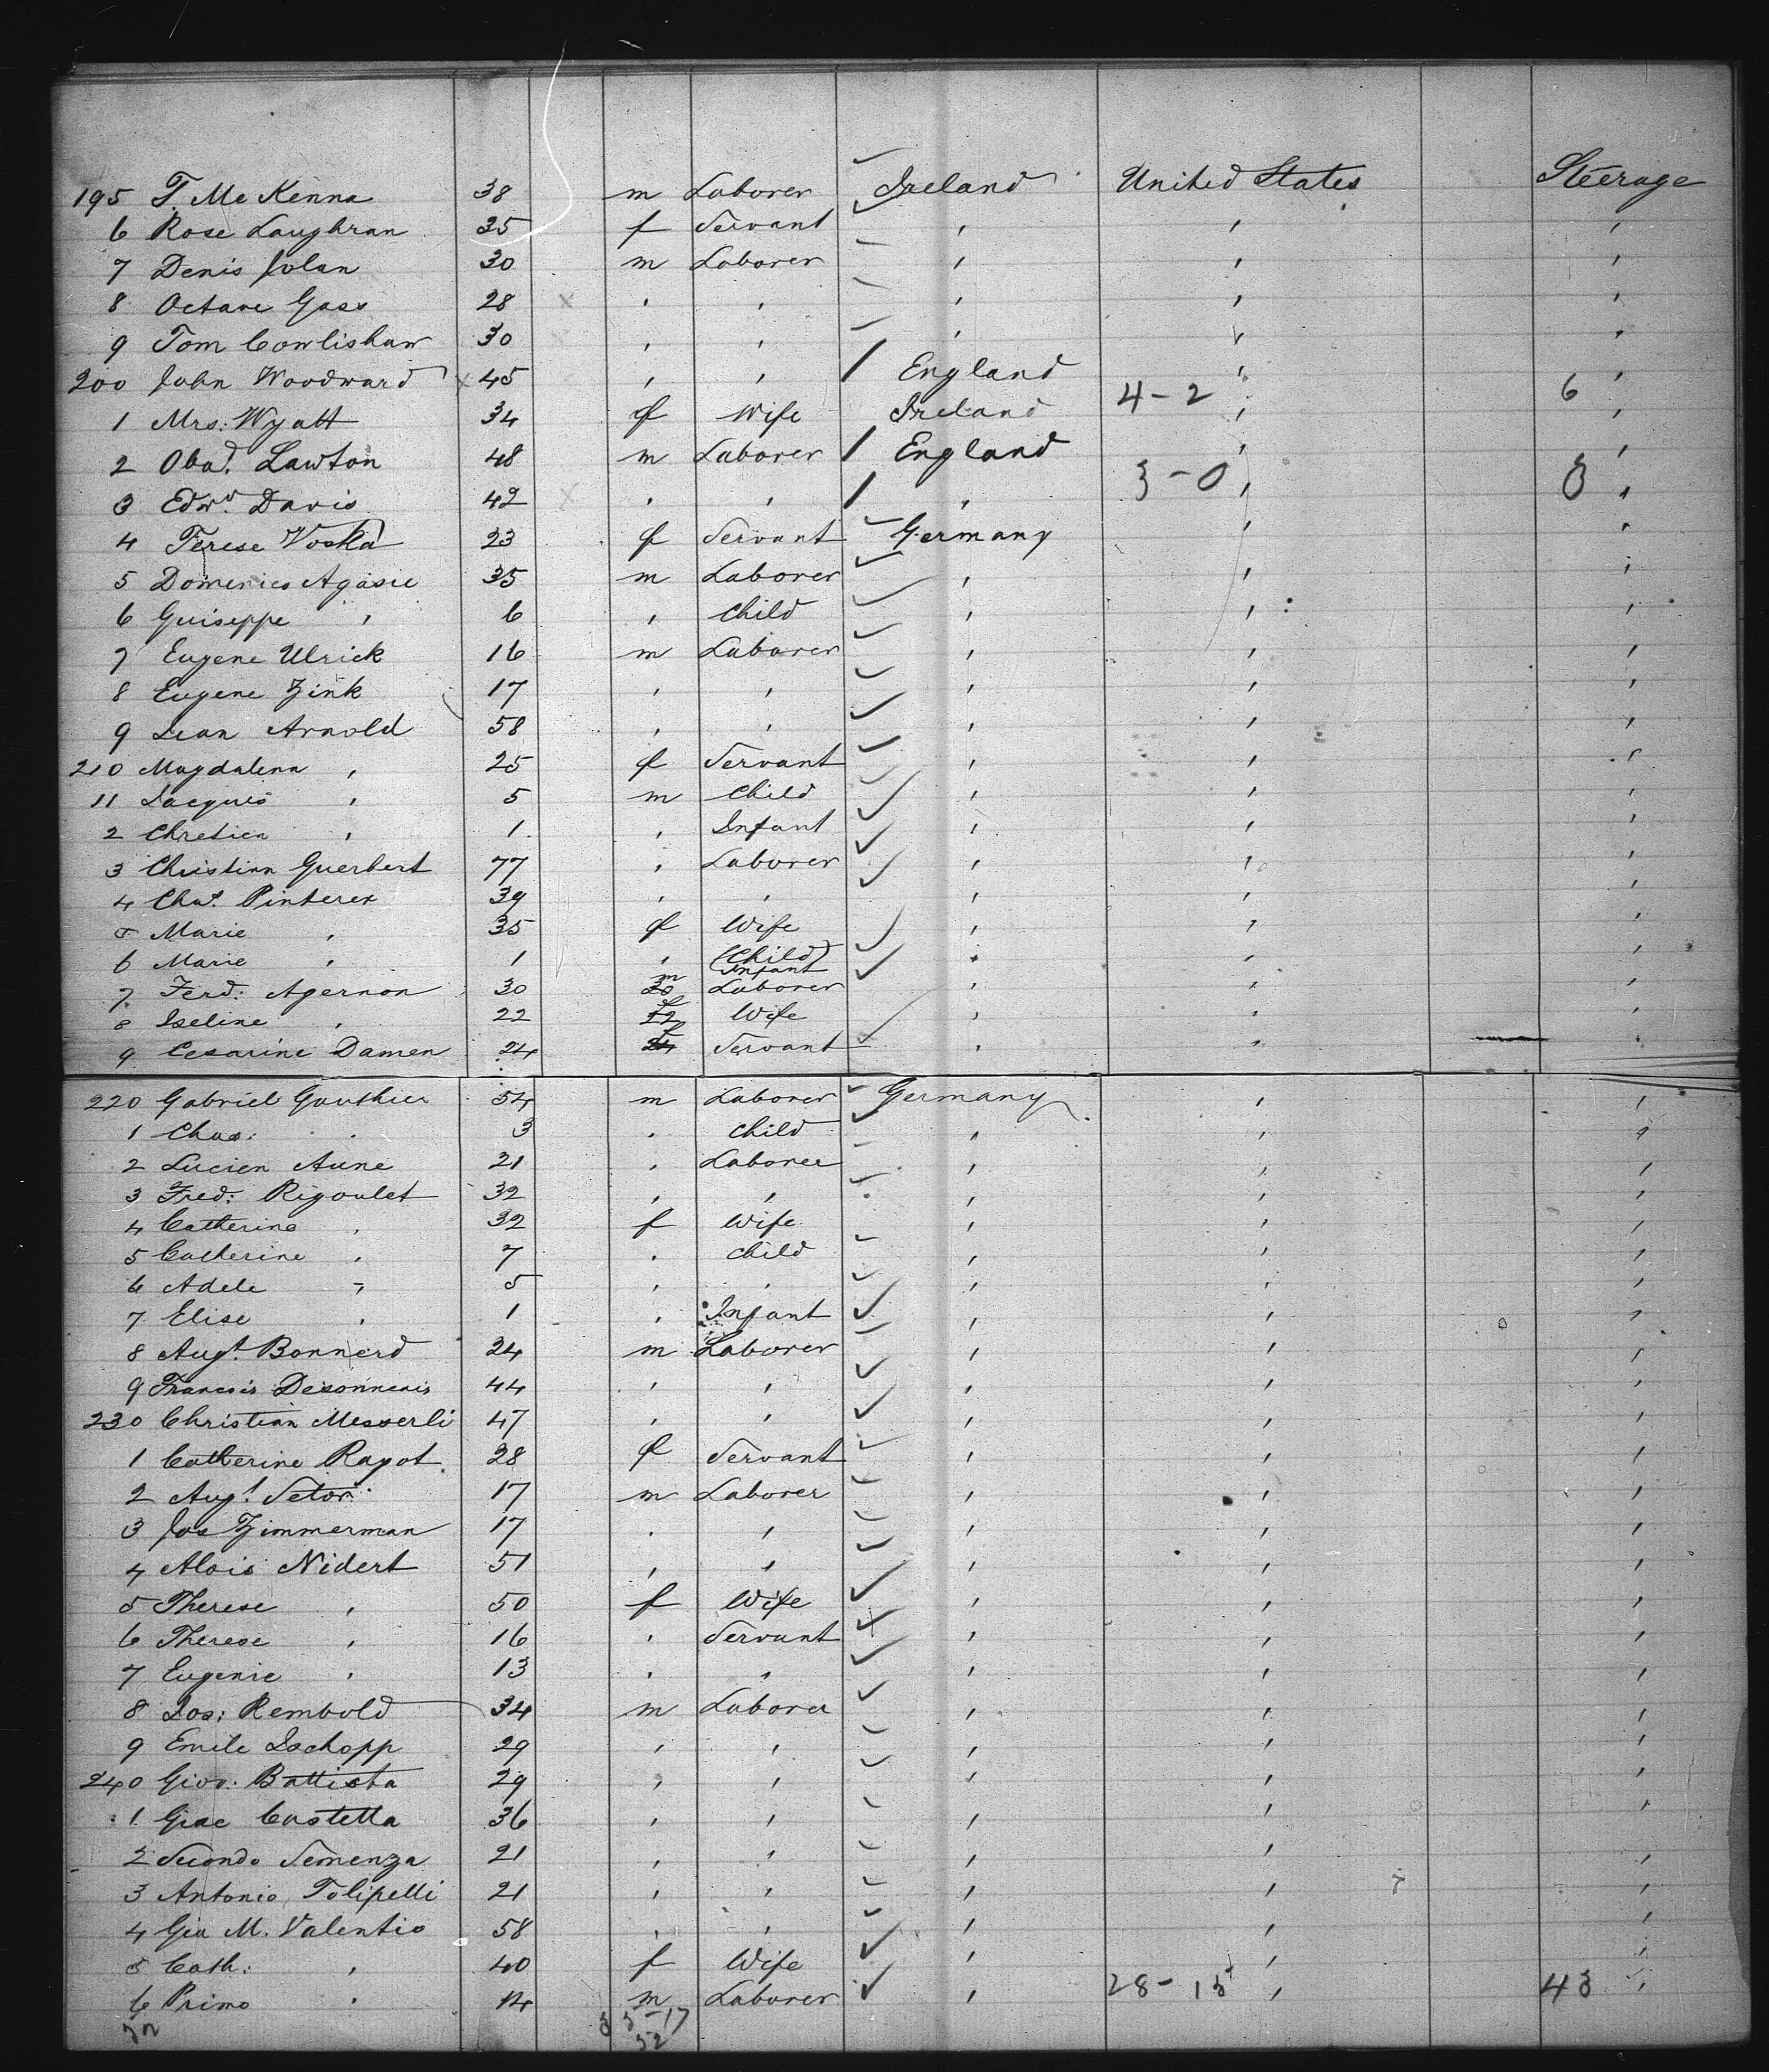 195 T. McKenna 38 m Laborer Ireland United States Steerage
6 Rose Laughran 35 f Servant " " "
7 Denis Jolan 30 m Laborer " " "
8 Octave Gass 28 " " " " "
9 Tom Cowlishaw 30 " " " " "
200 John Woodward 45 " " England " "
4-2 6
1 Mrs. Wyatt 34 f Wife Ireland " "
2 Obad. Lawton 48 m Laborer England " "
3-0 3
3 Edwd. Davis 42 " " " " "
4 Terese Voska 23 f Servant Germany " "
5 Domenico Agasie 35 m Laborer " " "
6 Guiseppe " 6 " Child " " "
7 Eugene Ulrick 16 m Laborer " " "
8 Eugene Zink 17 " " " " "
9 Jean Arnold 58 " " " " "
210 Magdalena " 25 f Servant " " "
11 Jacques " 5 m Child " " "
2 Chretien " 1 " Infant " " "
3 Christian Guerbert 77 " Laborer " " "
4 Chas. Pinterex 39 " " " " "
5 Marie " 35 f Wife " " "
6 Marie " 1 " (Child) Infant " " "
7 Ferd: Agernon 30 m Laborer " " "
8 Iseline " 22 f Wife " " "
9 Cesarine Damen 24 f Servant " " "
220 Gabriel Gauthier 54 m Laborer Germany " "
1 Chas: " 3 " Child " " "
2 Lucien Aune 21 " Laborer " " "
3 Fred: Rigoulet 32 " " " " "
4 Catherine " 32 f Wife " " "
5 Catherine " 7 " Child " " "
6 Adele " 5 " " " " "
7 Elise " 1 " Infant " " "
8 Augt. Bonnerd 24 m Laborer " " "
9 Francois Desonnenis 44 " " " " "
230 Christian Messerli 47 " " " " "
1 Catherine Rayot 28 f Servant " " "
2 Augt. Setor 17 m Laborer " " "
3 Jos Zimmerman 17 " " " " "
4 Alois Nidert 51 " " " " "
5 Therese " 50 f Wife " " "
6 Therese " 16 " Servant " " "
7 Eugenie " 13 " " " " "
8 Jos: Rembold 34 m Laborer " " "
9 Emile Ischopp 29 " " " " "
240 Giov. Battista 29 " " " " "
1 Giac Costetta 36 " " " " "
2 Secondo Semenza 21 " " " " "
3 Antonio Tolipelli 21 " " " " "
4 Gia M. Valentio 58 " " " " "
5 Cath: " 40 f Wife " " "
6 Primo " 14 m Laborer " 28-15 " 43 "
52 35-17
52